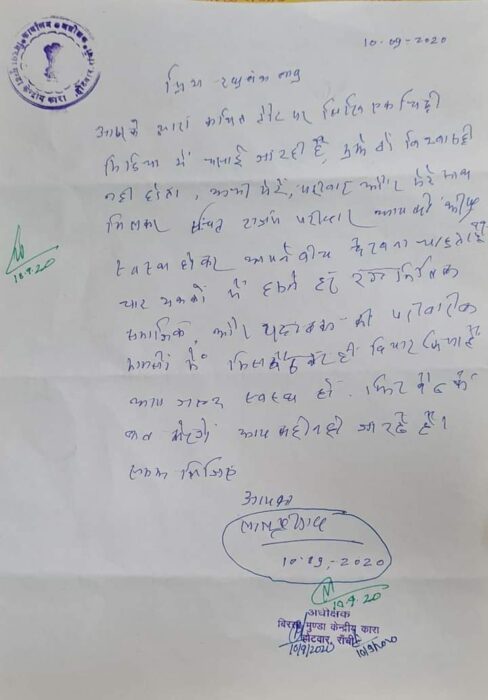 कार्यालय अधीक्षक
बिरसा मुण्डा केन्द्रीय कारा, होटवार
10-09-2020
प्रिय रघुवंश बाबू
आपके द्वारा कथित तौर पर लिखी एक चिट्ठी
मिडिया में चलाई जा रही है, मुझे तो विश्वास ही
नहीं होता, अभी मेरे, परिवार और मेरे साथ
मिलकर राजद परिवार आपको शीघ्र
स्वस्थ होकर अपने बीच देखना चाहता है
चार दशकों में हमने हर राजनितिक
समाजिक, और यहाँ तक की परिवारिक
मामलों में मिल बैठकर ही विचार किया है
आप जरूर स्वस्थ हों. फिर बैठ के
बात करेंगे आप कहीं नहीं जा रहे हैं।
समझ लिजिए
आपका
लालू प्रसाद
10.09.-2020
10.9.20
10.9.20
अधीक्षक
बिरसा मुण्डा केन्द्रीय कारा
होटवार, राँची
10/9/2020 10/9/2020